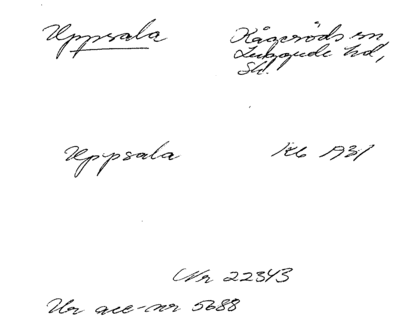 Uppsala
Kågeröds sn
Luggude hd,
Sk.
Uppsala
1931
Nr 22343
Ur acc-nr 5688